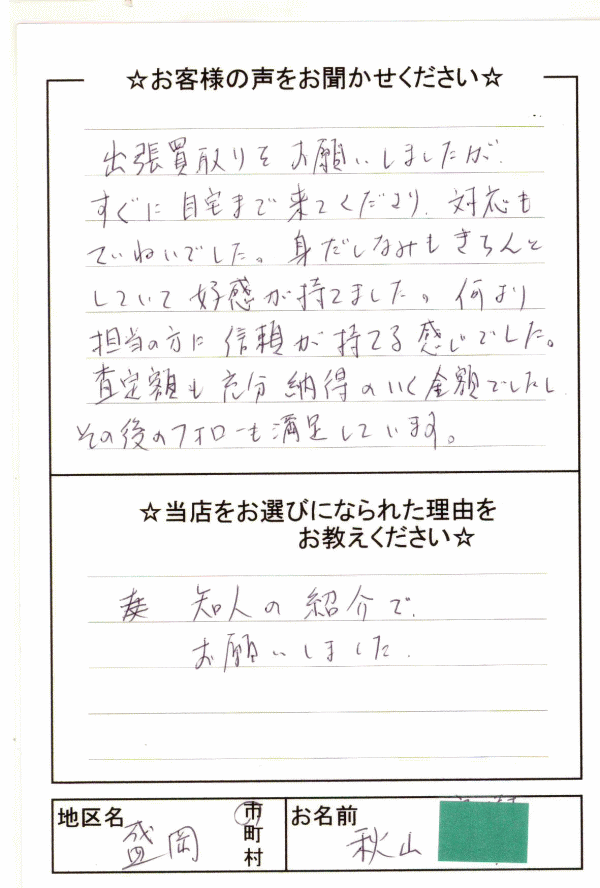 ☆お客様の声をお聞かせください☆
出張買取りをお願いしましたが、
すぐに自宅まで来てくださり、対応も
ていねいでした。身だしなみもきちんと
していて好感が持てました。何より
担当の方に信頼が持てる感じでした。
査定額も充分納得のいく金額でしたし
その後のフォローも満足しています。
☆当店をお選びになられた理由を
お教えください☆
知人の紹介で、
お願いしました。
地区名 盛岡 市町村
お名前 秋山